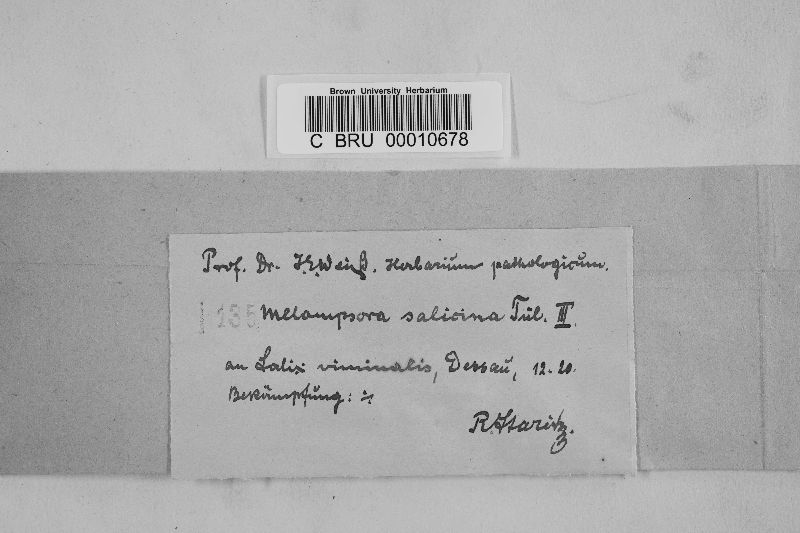 Brown University Herbarium
C BRU 00010678
Prof. Dr. J.E. Weiß. Herbarium pathologicum.
135 Melampsora salicina Tul. III.
an Salix viminalis, Dessau, 12. 20.
Bekämpfung:
R. Staritz.